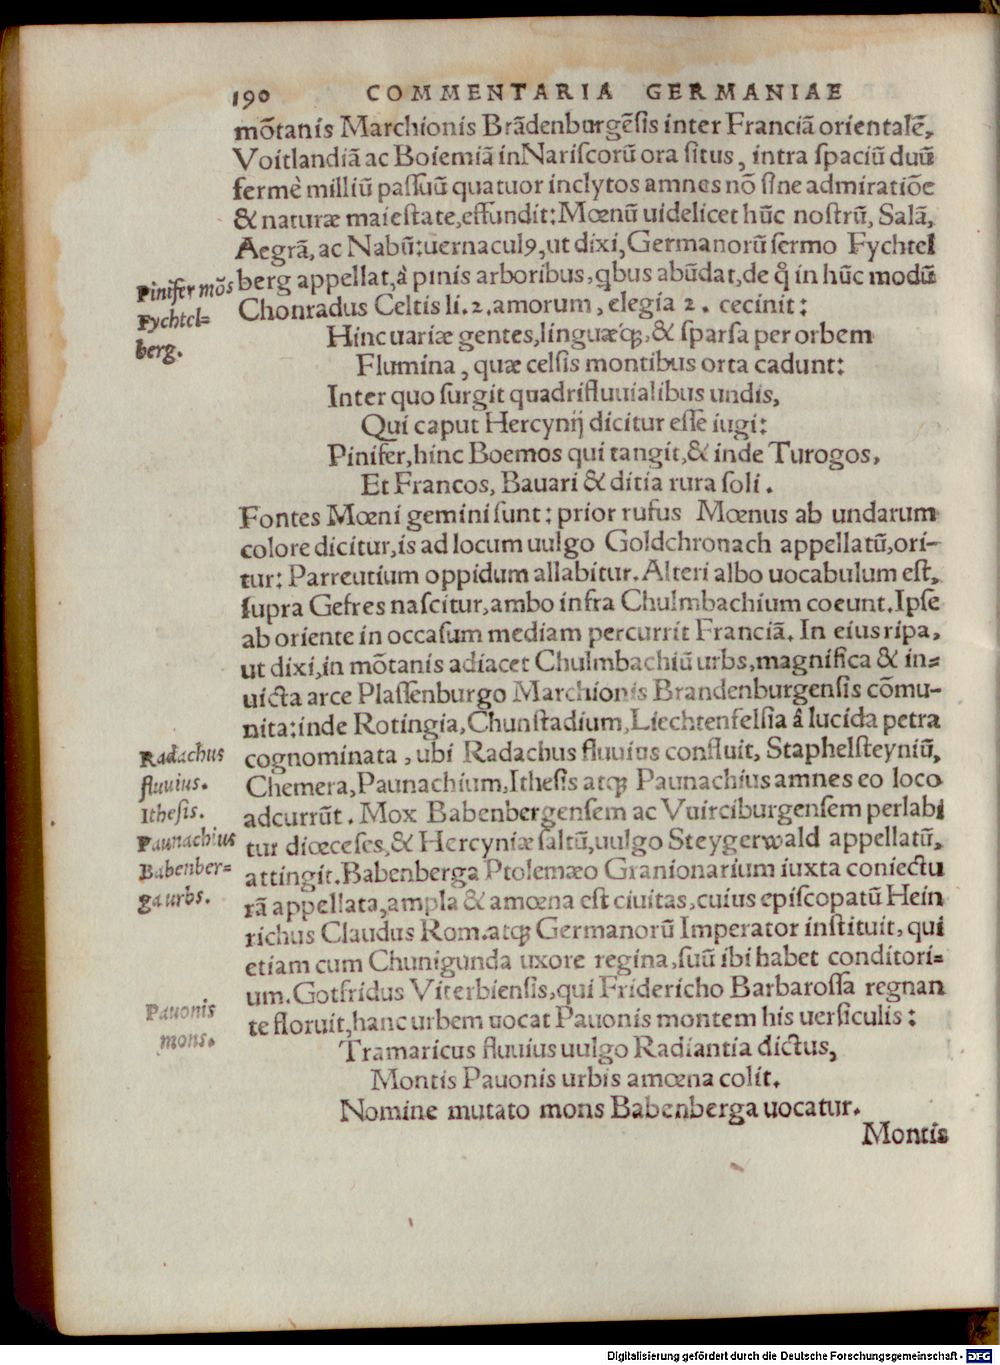 190 COMMENTARIA GERMANIAE
mõtanis Marchionis Brãdenburgẽsis inter Franciã orientalẽ,
Voitlandiã ac Boiemiã in Nariscorũ ora situs, intra spaciũ duũ
fermè milliũ passuũ quatuor inclytos amnes nõ sine admiratiõe
& naturæ maiestate, effundit: Mœnũ uidelicet hũc nostrũ, Salã,
Aegrã, ac Nabũ: uernaculꝰ, ut dixi, Germanorũ sermo Fychtel
Pinifer mõs
Fychtel=
berg.
berg appellat, à pinis arboribus, qbus abũdat, de q̊ in hũc modũ
Chonradus Celtis li. 2. amorum, elegia 2. cecinit:
Hinc uariæ gentes, linguæq́ꝫ, & sparsa per orbem
Flumina, quæ celsis montibus orta cadunt:
Inter quo surgit quadrifluuialibus undis,
Qui caput Hercynij dicitur esse iugi:
Pinifer, hinc Boemos qui tangit, & inde Turogos,
Et Francos, Bauari & ditia rura soli.
Fontes Mœni gemini sunt: prior rufus Mœnus ab undarum
colore dicitur, is ad locum uulgo Goldchronach appellatũ, ori-
tur: Parreutium oppidum allabitur. Alteri albo uocabulum est,
supra Gefres nascitur, ambo infra Chulmbachium coeunt. Ipse
ab oriente in occasum mediam percurrit Franciã. In eius ripa,
ut dixi, in mõtanis adiacet Chulmbachiũ urbs, magnifica & in=
uicta arce Plassenburgo Marchionis Brandenburgensis cõmu-
nita: inde Rotingia, Chunstadium, Liechtenfelsia â lucida petra
Radachus
fluuius.
Ithesis.
Paunachius
Babenber=
ga urbs.
cognominata, ubi Radachus fluuius confluit, Staphelsteyniũ,
Chemera, Paunachium, Ithesis atqꝫ Paunachius amnes eo loco
adcurrũt. Mox Babenbergensem ac Vuirciburgensem perlabi
tur diœceses, & Hercyniæ saltũ, uulgo Steygerwald appellatũ,
attingit. Babenberga Ptolemæo Granionarium iuxta coniectu
rã appellata, ampla & amœna est ciuitas, cuius episcopatũ Hein
richus Claudus Rom. atqꝫ Germanorũ Imperator instituit, qui
etiam cum Chunigunda uxore regina, suũ ibi habet conditori=
um. Gotfridus Viterbiensis, qui Fridericho Barbarossa regnan
Pauonis
mons.
te floruit, hanc urbem uocat Pauonis montem his uersiculis:
Tramaricus fluuius uulgo Radiantia dictus,
Montis Pauonis urbis amœna colit.
Nomine mutato mons Babenberga uocatur.
Montis
Digitalisierung gefördert durch die Deutsche Forschungsgemeinschaft - DFG